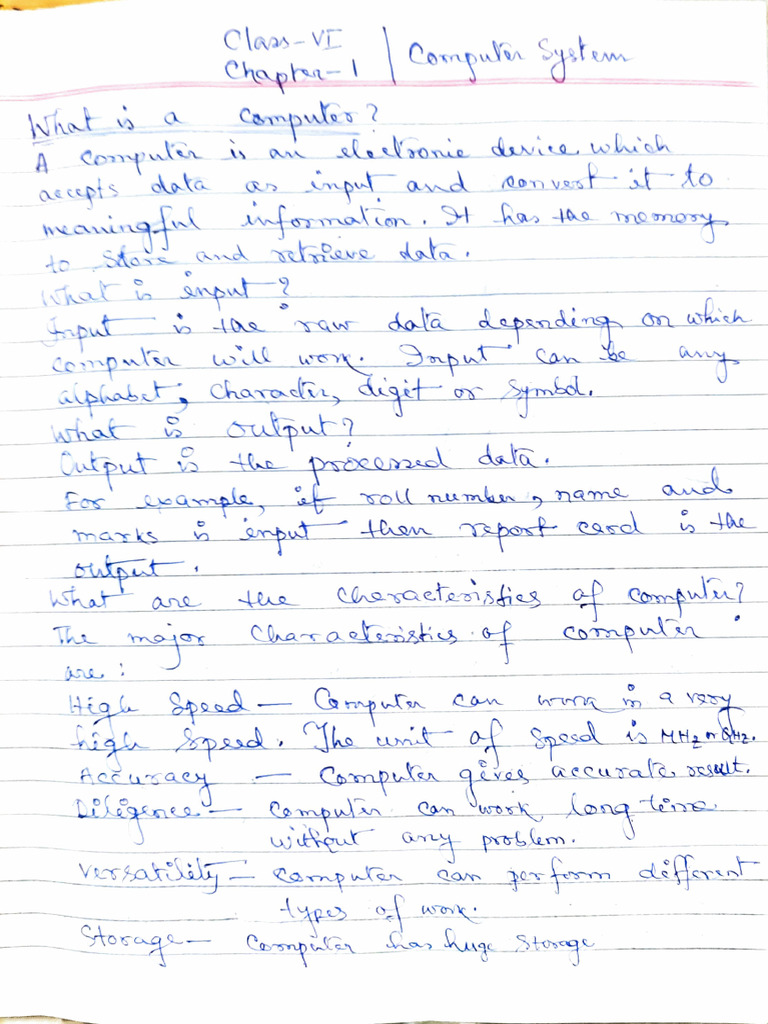 Class-VI
Chapter-1 | Computer System
What is a computer?
A computer is an electronic device which
accepts data as input and convert it to
meaningful information. It has the memory
to store and retrieve data.
What is input?
Input is the raw data depending on which
computer will work. Input can be any
alphabet, character, digit or symbol.
What is output?
Output is the processed data.
For example, if roll number, name and
marks is input then report card is the
output.
What are the characteristics of computer?
The major characteristics of computer
are:
High Speed — Computer can work in a very
high speed. The unit of speed is MHz or GHz.
Accuracy — Computer gives accurate result.
Diligence — Computer can work long time
without any problem.
Versatility — Computer can perform different
types of work.
Storage — Computer has huge storage